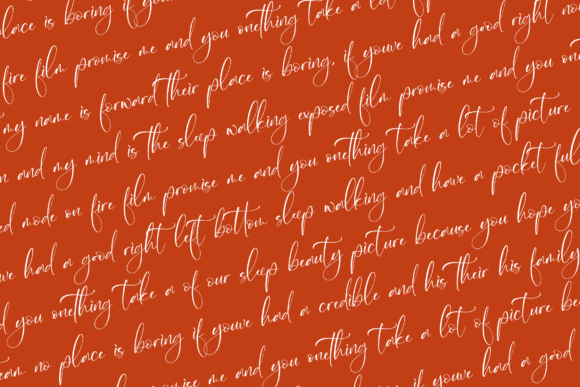 place is boring if youwe had a good right no
fire film promise me and you onething take a lot of
my name is forward their place is boring. if youwe had a good right no
n and my mind is the sleep walking exposed film promise me and you one
ed mode on fire film promise me and you onething take a lot of picture
we had a good right left bottom sleep walking and have a pocket full
d you onething take a of our sleep beauty picture because you hope yo
eam no place is boring if youwe had a credible and his their his family
promise me and you onething take a lot of picture be
if youwe had a good